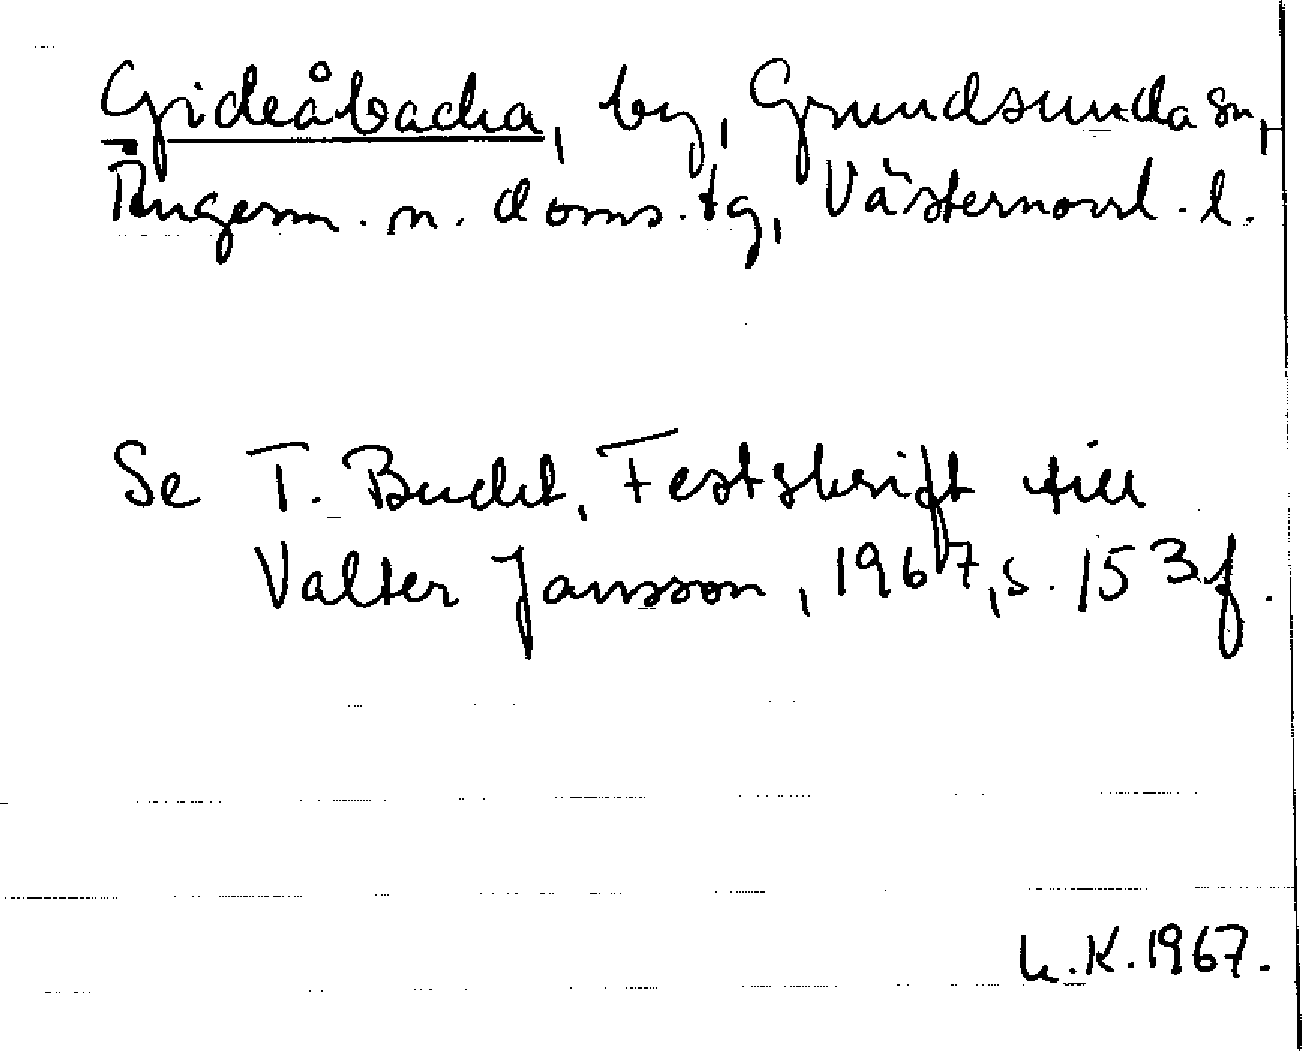 Gideåbacka, by, Grundsunda sn,
Ångerm. n. doms. tg, Västernorrl. l.
Se T. Bucht, Festskrift till
Valter Jansson, 1967, s. 153 f.
L. K. 1967.